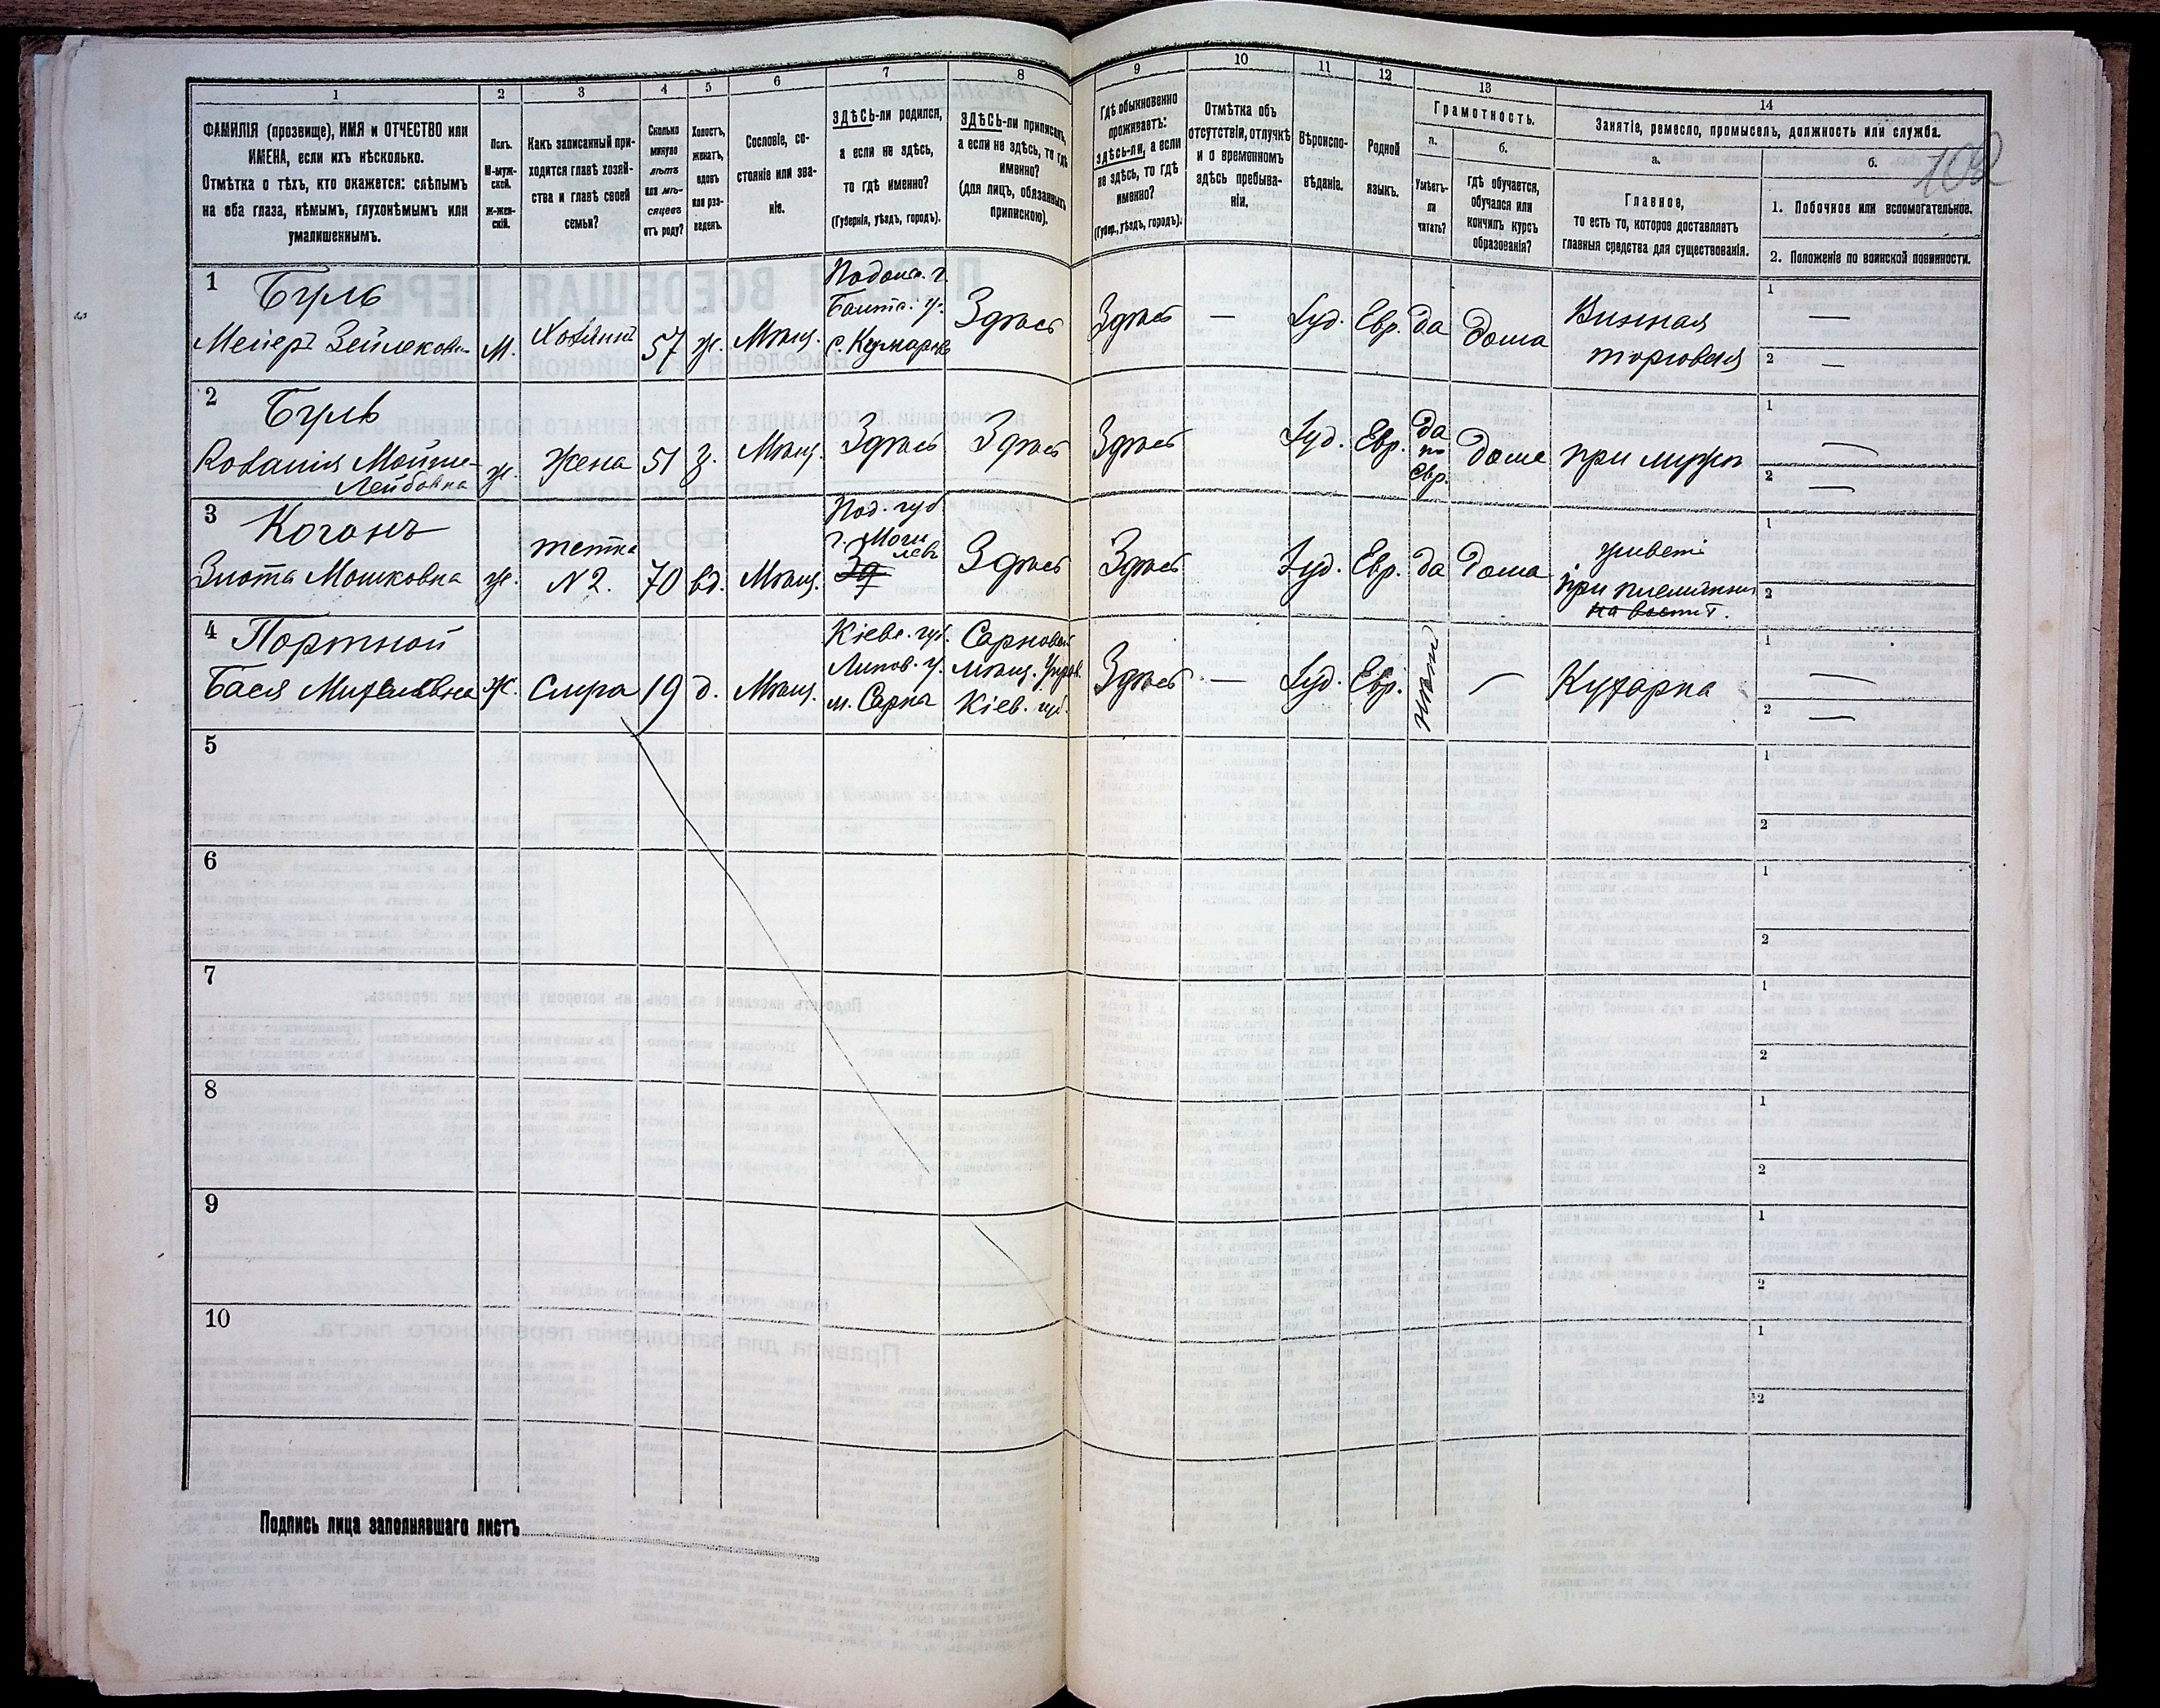 1
2
3
4
5
6
7
8
ФАМИЛІЯ (прозвище), ИМЯ и ОТЧЕСТВО или
ИМЕНА, если ихъ нѣсколько.
Отмѣтка о тѣхъ, кто окажется: слѣпымъ
на оба глаза, нѣмымъ, глухонѣмымъ или
умалишеннымъ.
Полъ.
М-муж-
ской.
Ж-жен-
скій.
Какъ записанный при-
ходится главѣ хозяй-
ства и главѣ своей
семьи?
Сколько
минуло
лѣтъ
или мѣ-
сяцевъ
отъ роду?
Холостъ,
женатъ,
вдовъ
или раз-
веденъ.
Сословіе, со-
стояніе или зва-
ніе.
ЗДѢСЬ-ли родился,
а если не здѣсь,
то гдѣ именно?
(Губернія, уѣздъ, городъ).
ЗДѢСЬ-ли приписанъ,
а если не здѣсь, то гдѣ
именно?
(для лицъ, обязанныхъ
припискою).
9
10
11
12
13
14
Гдѣ обыкновенно
проживаетъ:
здѣсь-ли, а если
не здѣсь, то гдѣ
именно?
(Губер., уѣздъ, городъ).
Отмѣтка объ
отсутствіи, отлучкѣ
и о временномъ
здѣсь пребыва-
ніи.
Вѣроиспо-
вѣданіе.
Родной
языкъ.
Грамотность.
а.
Умѣетъ-
ли
читать?
б.
гдѣ обучается,
обучался или
кончилъ курсъ
образованія?
Занятіе, ремесло, промыселъ, должность или служба.
а.
Главное,
то есть то, которое доставляетъ
главныя средства для существованія.
б.
102
1. Побочное или вспомогательное.
2. Положеніе по воинской повинности.
1
Буль
Мейеръ
М.
Хозяинъ
57
ж.
Мѣщ.
Подольс. г.
Балтс. у.
Здѣсь
Здѣсь
—
Іуд.
Евр.
да
дома
Винная
торговля
1 —
2 —
2
Буль
Мойше-
Лейбовна
ж.
Жена
51
з.
Мѣщ.
Здѣсь
Здѣсь
Здѣсь
Іуд.
Евр.
да
по
евр.
дома
при мужѣ
1 —
2 —
3
Коганъ
Злота Мошковна
ж.
тетка
N 2.
70
вд.
Мѣщ.
Под. губ.
г. Моги
левъ
Зд
Здѣсь
Здѣсь
Іуд.
Евр.
да
дома
живетъ
при племянни
1
2
4
Портной
Бася
ж.
19
д.
Мѣщ.
Кіевс. губ.
Липов. у.
м. Сарна
Кіев. губ.
Здѣсь
—
Іуд.
Евр.
нѣтъ
—
Кухарка
1 —
2 —
5
1
2
6
1
2
7
1
2
8
1
2
9
1
2
10
1
2
Подпись лица заполнявшаго листъ